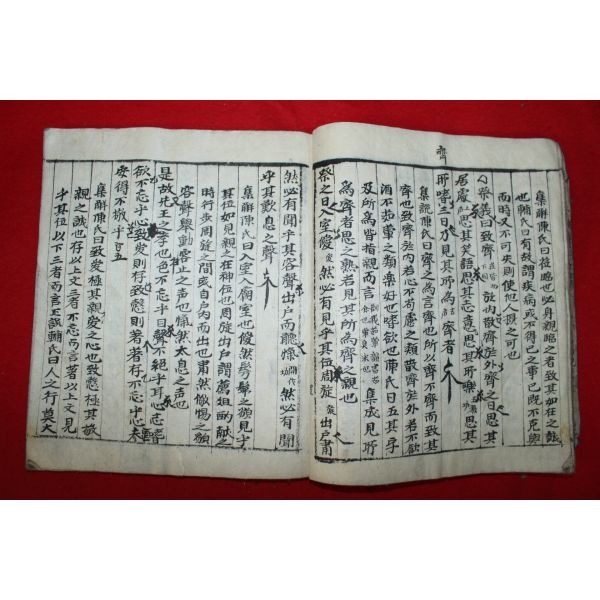 齊
集解陳氏曰莅臨也必身親臨之者致其如在之誠
也輔氏曰有故謂疾病或不得已之事已旣不克與
而時又不可失則使他人攝之可也
祭義曰致齊於內散齊於外齊之日思其
居處思其笑語思其志意思其所樂思其
所嗜三日乃見其所爲齊者
集說陳氏曰齊之爲言齊也所以齊不齊而致其
齊也致齊於內若心不苟慮之類散齊於外若不飮
酒不茹葷之類樂好也嗜欲也陳氏曰五其字
及所爲皆指親而言 集成見所
爲齊者思之熟若見其所爲齊之親也
祭之日入室僾然必有見乎其位周旋出戶肅
然必有聞乎其容聲出戶而聽愾然必有聞
乎其歎息之聲
集解陳氏曰入室入廟室也僾然髣髴之貌見乎
其位如見親之在神位也周旋出戶謂薦俎酌獻之
時行步周旋之間或自戶內而出也肅然儆惕之貌
容聲舉動容止之声也愾然太息之声也
是故先王之孝也色不忘乎目聲不絶乎耳心志嗜
欲不忘乎心致愛則存致慤則著著存不忘乎心夫
安得不敬乎
集解陳氏曰致愛極其親愛之心也致慤極其敬
親之誠也存以上文三者不忘而言著以上文見
乎其位以下三者而言 輔氏曰人之行莫大